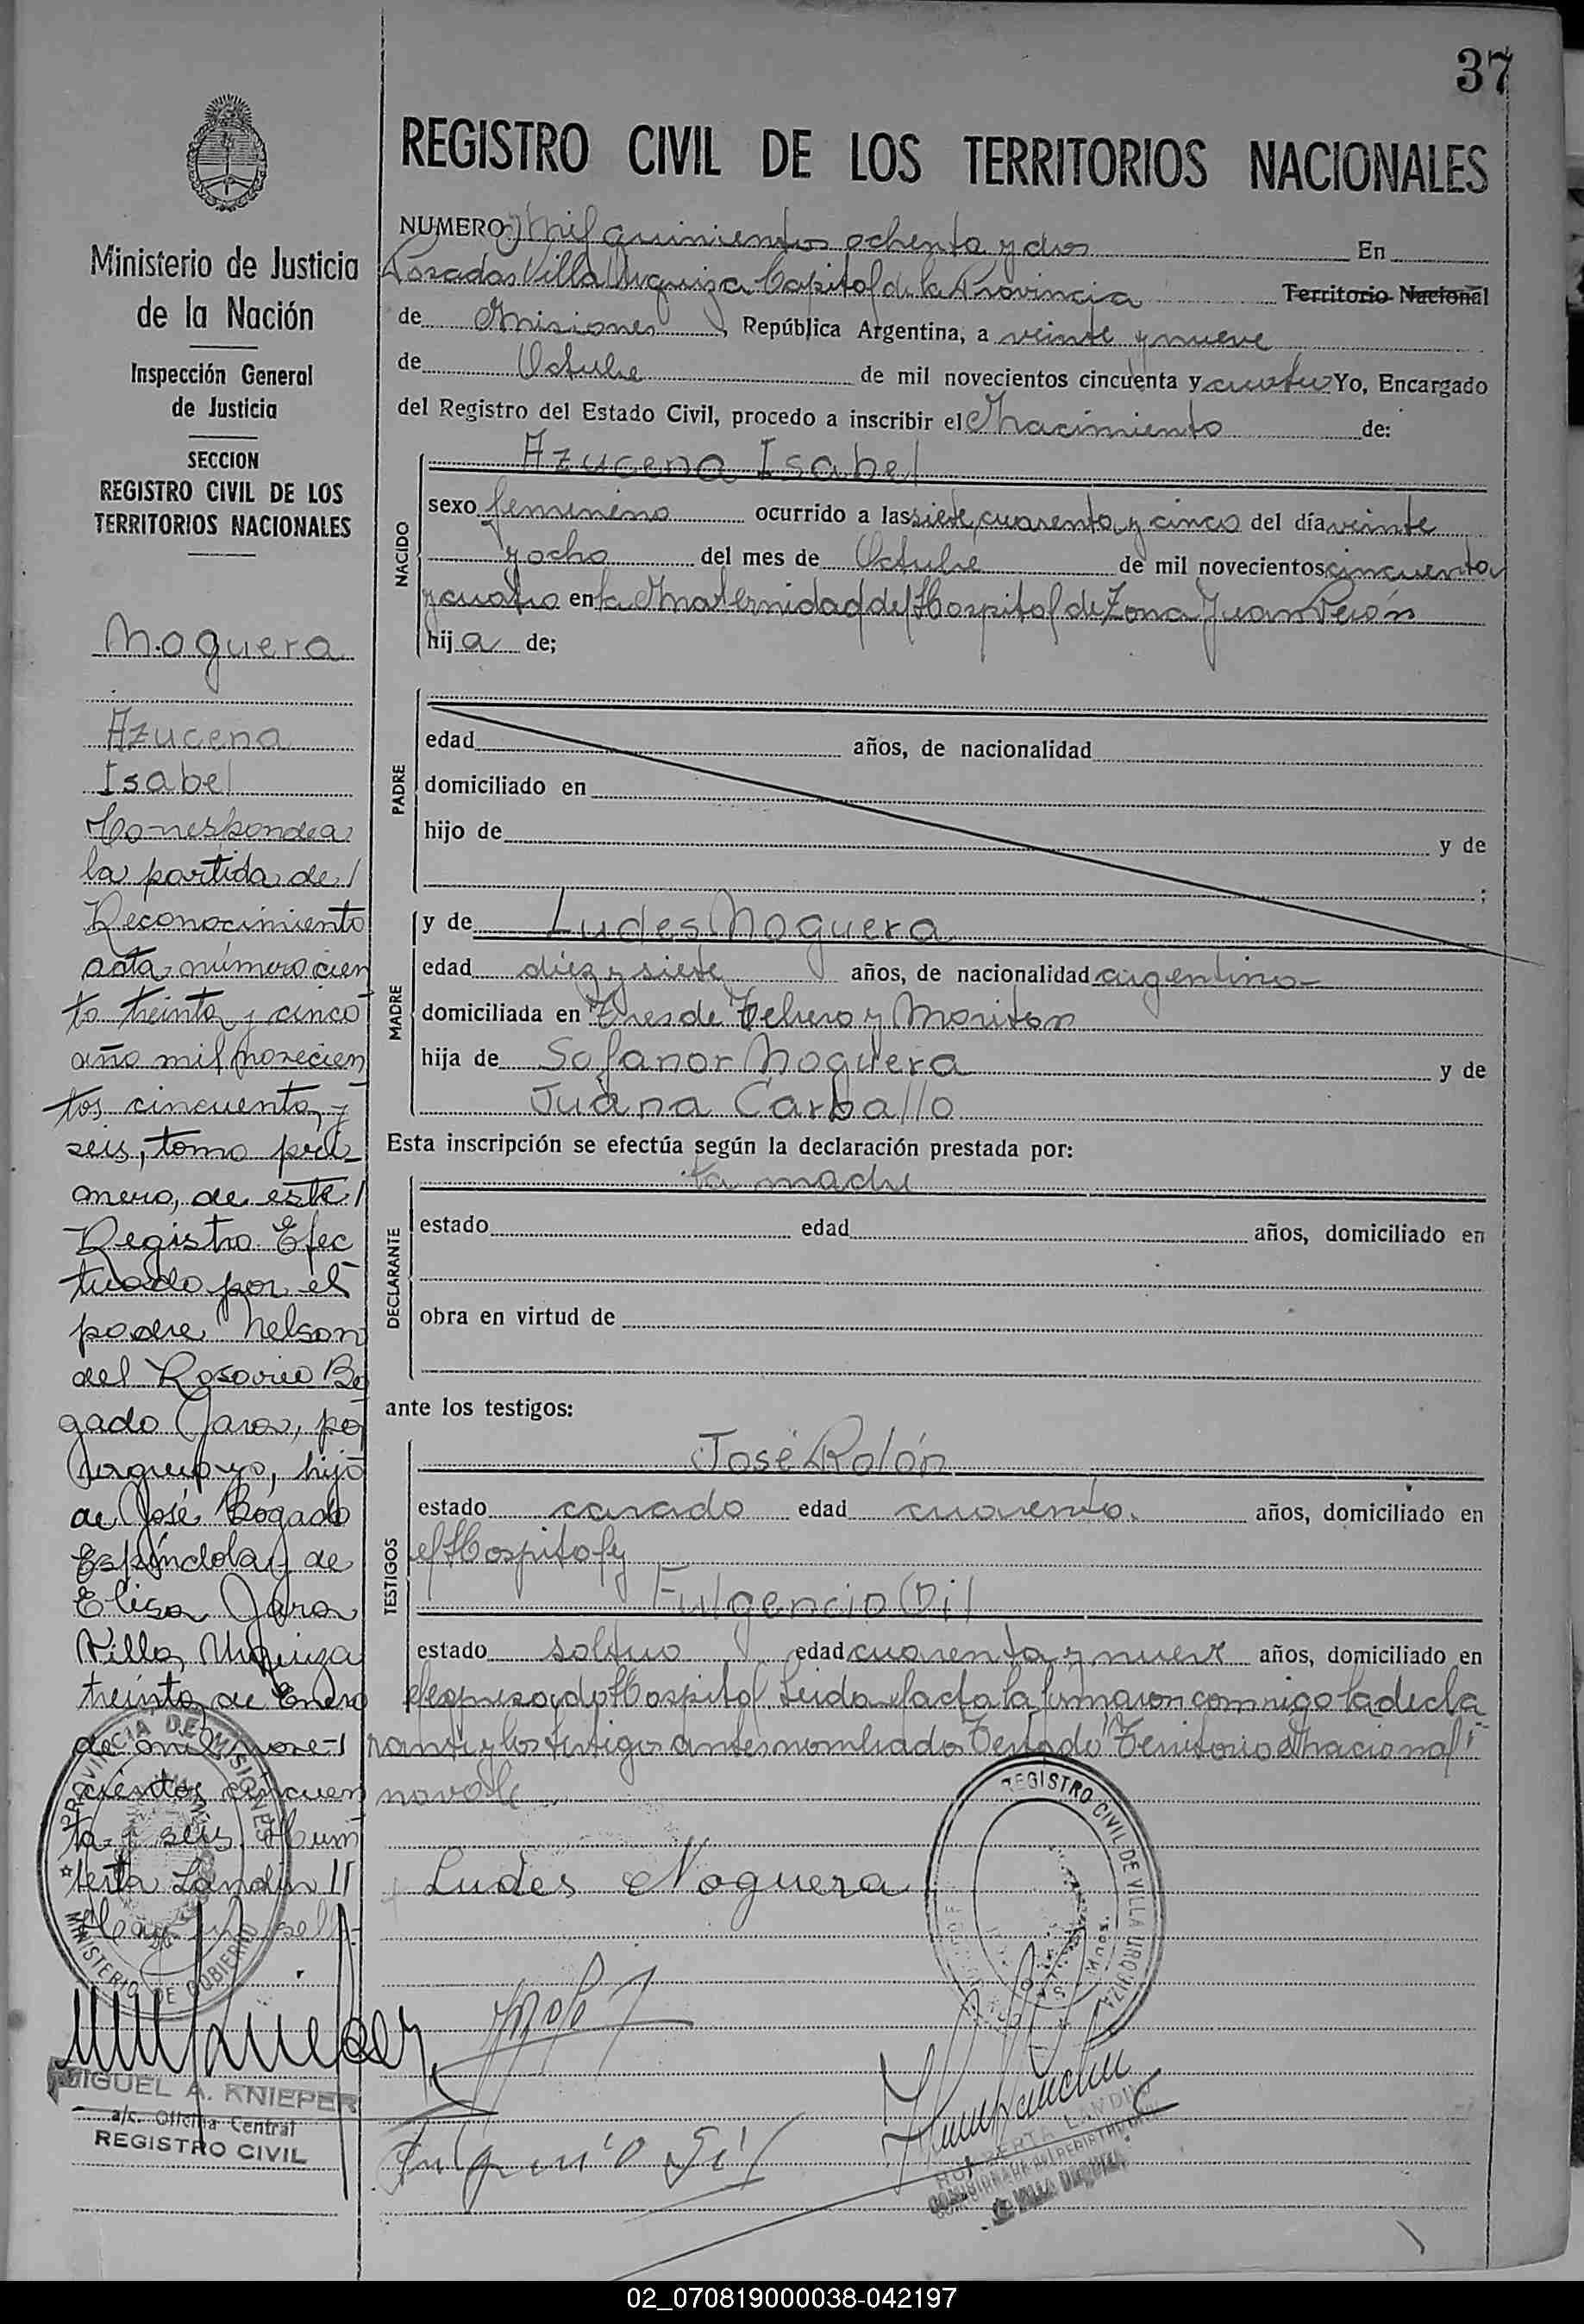 37
REGISTRO CIVIL DE LOS TERRITORIOS NACIONALES
Ministerio de Justicia
de la Nación
Inspección General
de Justicia
SECCION
REGISTRO CIVIL DE LOS
TERRITORIOS NACIONALES
Noguera
Azucena
Isabel
Corresponde a
la partida de
Reconocimiento
acta número cien
to treinta y cinco
año mil novecien
tos cincuenta y
seis, tomo pri-
mero, de este
Registro Efec
tuado por el
padre Nelson
del Rosario Bo
gado Jara, pa
raguayo, hijo
de José Bogado
Espíndola y de
Elisa Jara
Villa Urquiza
treinta de Enero
de mil nove-
cientos cincuen
ta y seis. Hum
berta Landin
Hay un sello
PROVINCIA DE MISIONES
MINISTERIO DE GOBIERNO
MIGUEL A. KNIEPER
a/c. Oficina Central
REGISTRO CIVIL
NUMERO Mil quinientos ochenta y dos En
Posadas Villa Urquiza Capital de la Provincia Territorio Nacional
de Misiones, República Argentina, a veinte y nueve
de Octubre de mil novecientos cincuenta y cuatro Yo, Encargado
del Registro del Estado Civil, procedo a inscribir el Nacimiento de:
NACIDO
Azucena Isabel
sexo femenino ocurrido a las siete, cuarenta y cinco del día veinte
y ocho del mes de Octubre de mil novecientos cincuenta
y cuatro en la Maternidad del Hospital de Zona Juan Perón
hija de;
PADRE
edad años, de nacionalidad
domiciliado en
hijo de y de
;
MADRE
y de Ludes Noguera
edad diez y siete años, de nacionalidad argentina
domiciliada en Tres de Febrero y Moritan
hija de Sofanor Noguera y de
Juana Carballo
Esta inscripción se efectúa según la declaración prestada por:
DECLARANTE
la madre
estado edad años, domiciliado en
obra en virtud de
ante los testigos:
TESTIGOS
José Rolón
estado casado edad cuarenta años, domiciliado en
el Hospital y
Fulgencio Gil
estado soltero edad cuarenta y nueve años, domiciliado en
el expresado Hospital Leida el acta la firmaron conmigo la decla
rante y los testigos antes nombrados Testado "Territorio Nacional"
no vale
Ludes Noguera
REGISTRO CIVIL DE VILLA URQUIZA
Fulgencio Gil
HUMBERTA LANDIN
VILLA URQUIZA
02_070819000038-042197